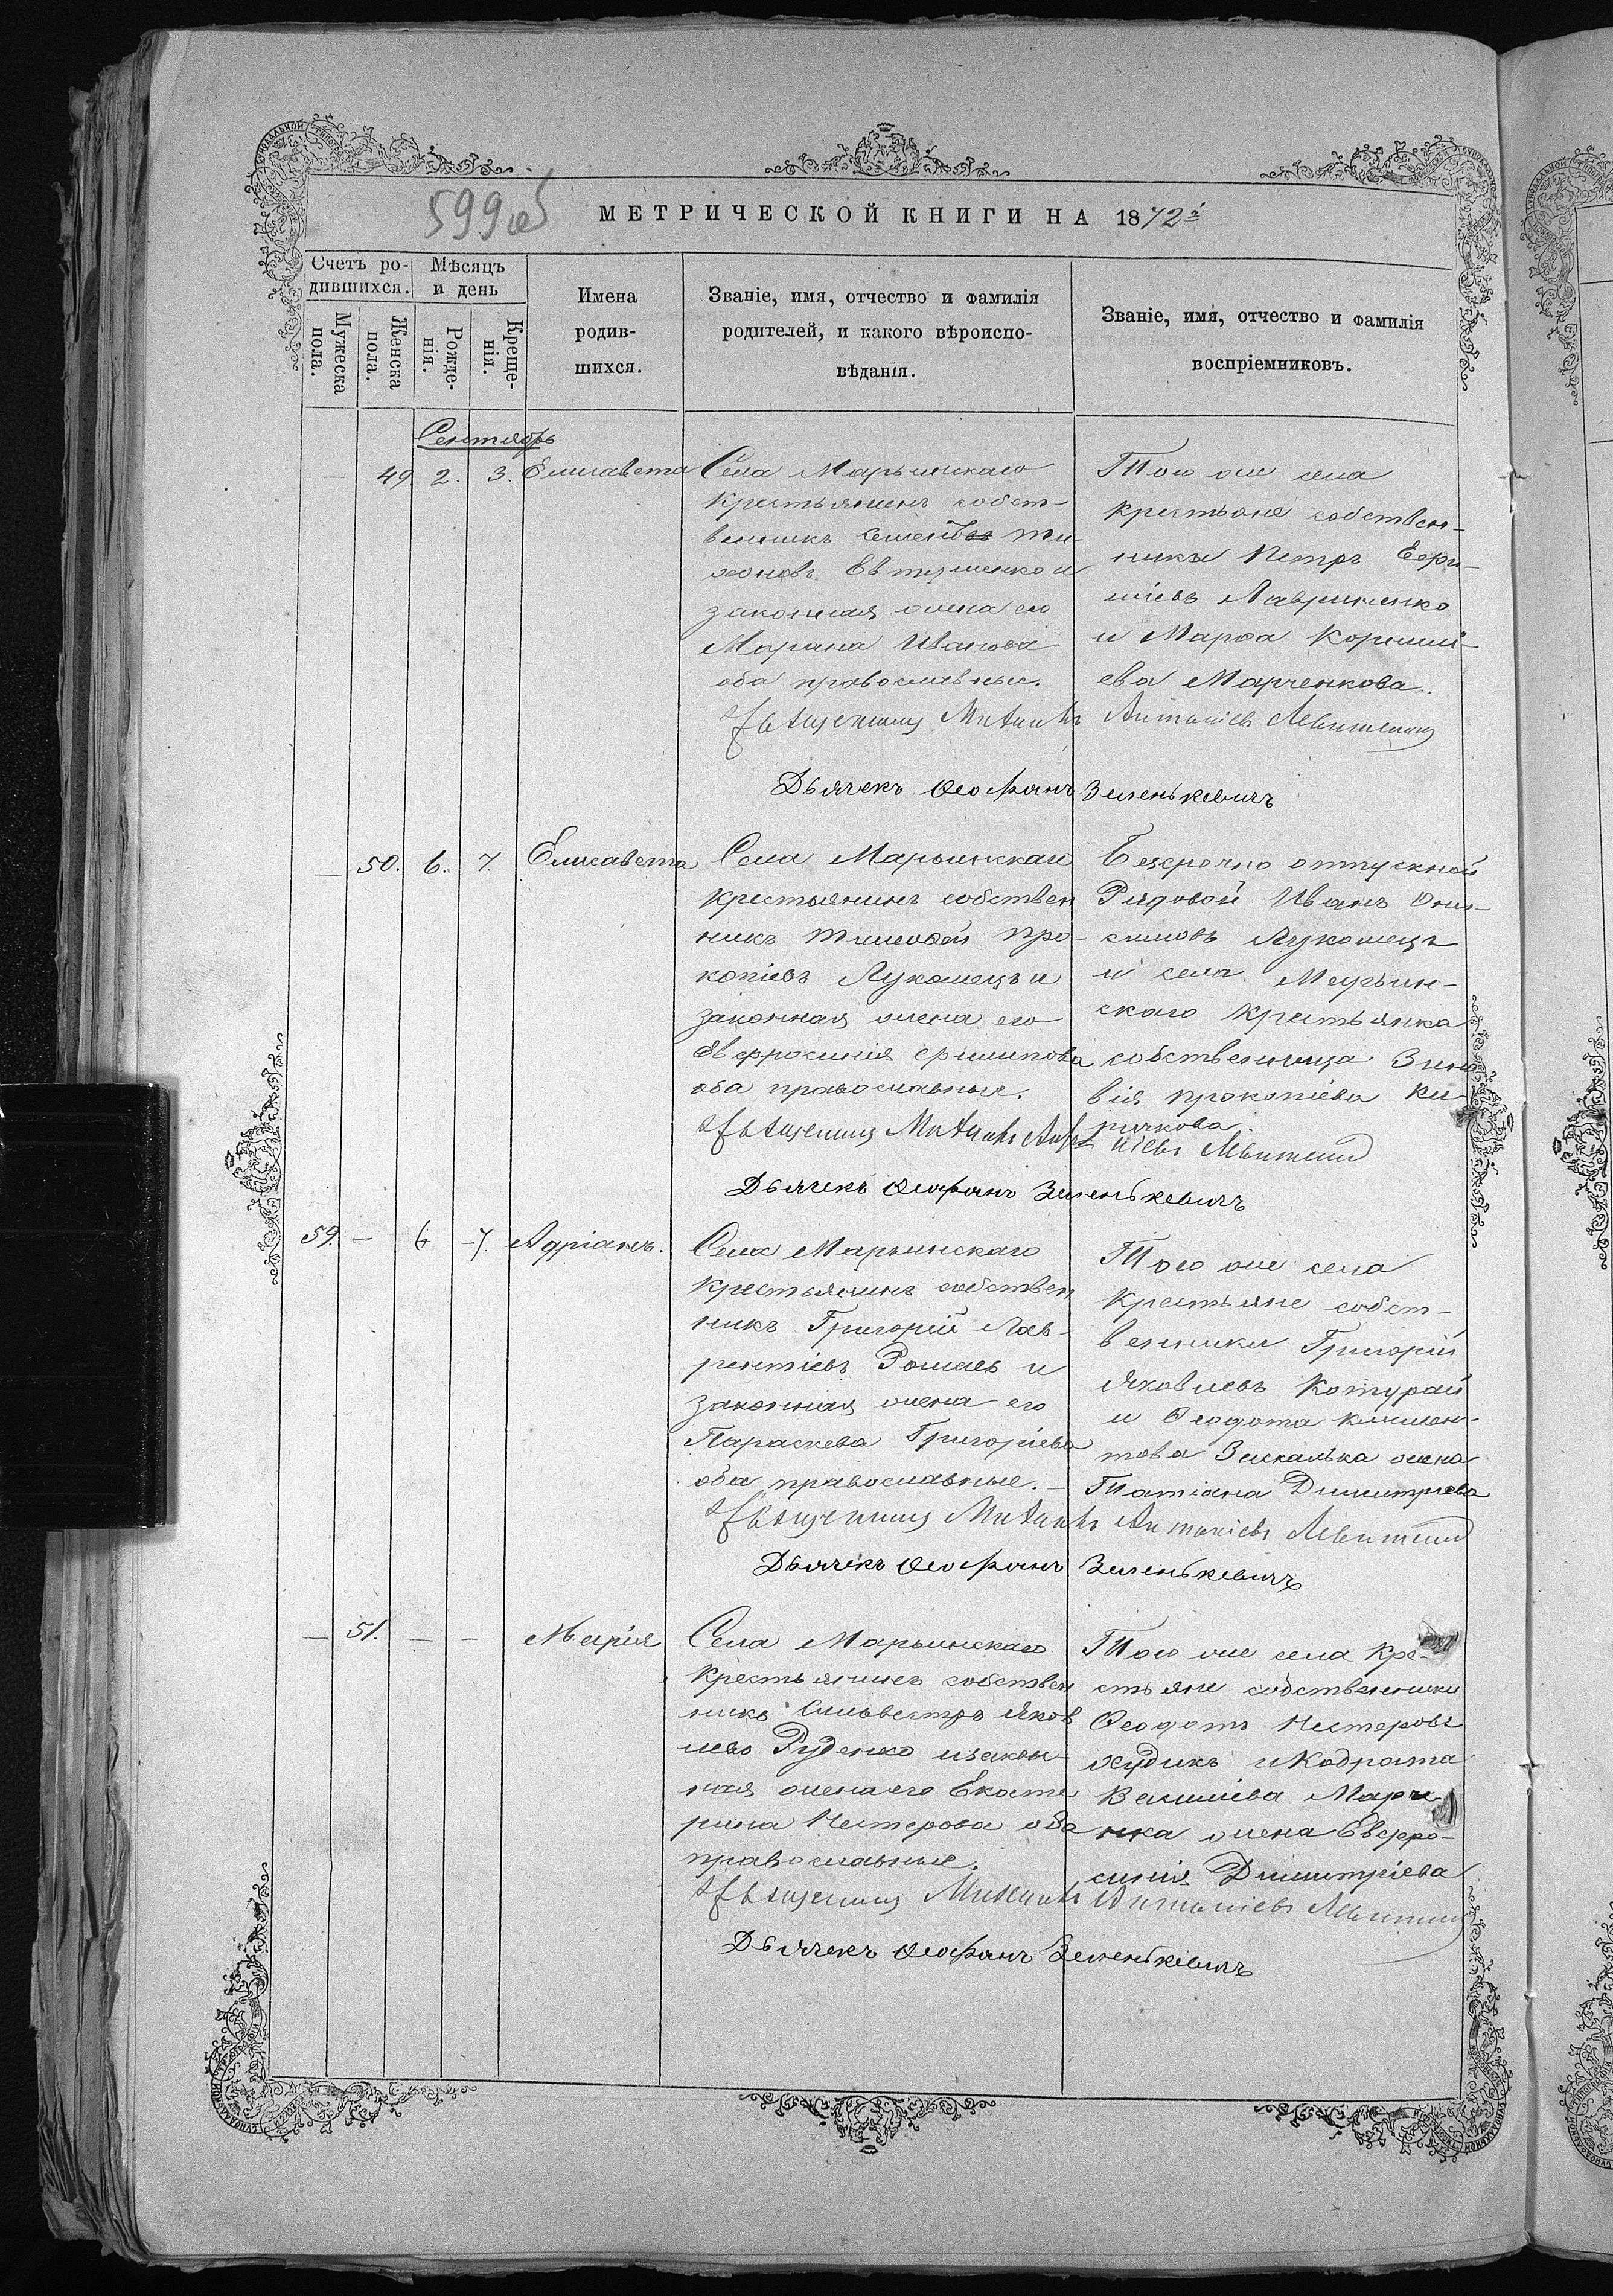 599 об
МЕТРИЧЕСКОЙ КНИГИ НА 1872й
Счетъ ро-
дившихся.
Мѣсяцъ
и день
Мужеска
пола.
Женска
пола.
Рожде-
нія.
Креще-
нія.
Имена
родив-
шихся.
Званіе, имя, отчество и фамилія
родителей, и какого вѣроиспо-
вѣданія.
Званіе, имя, отчество и фамилія
воспріемниковъ.
Сентябрь
— 49. 2. 3. Елисавета
Села Марьинскаго
крестьянинъ собст-
венникъ Ти-
хоновъ Евтушенко и
законная жена его
Марина Иванова
оба православные.
Того же села
крестьяне собствен-
ники Петръ
Лавриненко
и Марѳа Корнилі-
ева Марченкова.
Священникъ Михаилъ Антоніевъ Левитскій
Дьячекъ Ѳеофанъ Зеленькевичъ
— 50. 6. 7. Елисавета
Села Марьинскаго
крестьянинъ собствен
никъ Тимоѳей Про-
копіевъ Лукомецъ и
законная жена его
Евфросинія Филипова
оба православные.
Безсрочно отпускной
Рядовой Иванъ Они-
симовъ Лукомецъ
и села Марьин-
скаго крестьянка
собственница Зино
вія Прокопіева Ки-
ричкова.
Священникъ Михаилъ Антоніевъ Левитскій
Дьячекъ Ѳеофанъ Зеленькевичъ
59. — 6 7. Адріанъ.
Села Марьинскаго
крестьянинъ собствен
никъ Григорій Лав-
рентіевъ Ромась и
законная жена его
Параскева Григоріева
оба православные.—
Того же села
крестьяне собст-
венники Григорій
Яковлевъ Котурай
и Ѳеодота Климен-
това жена
Татіана Димитріева
Священникъ Михаилъ Антоніевъ Левитскій
Дьячекъ Ѳеофанъ Зеленькевичъ
— 51. — — Марія
Села Марьинскаго
крестьянинъ собствен
никъ Сильвестръ Яков
левъ Руденко и закон-
ная жена его Екате
рина Нестерова оба
православные.
Того же села кре-
стьяне собственники
Ѳеодотъ Нестеровъ
Худикъ и Кодрата
Василіева Марче-
нка жена Евфро-
синія Димитріева
Священникъ Михаилъ Антоніевъ Левитскій
Дьячекъ Ѳеофанъ Зеленькевичъ